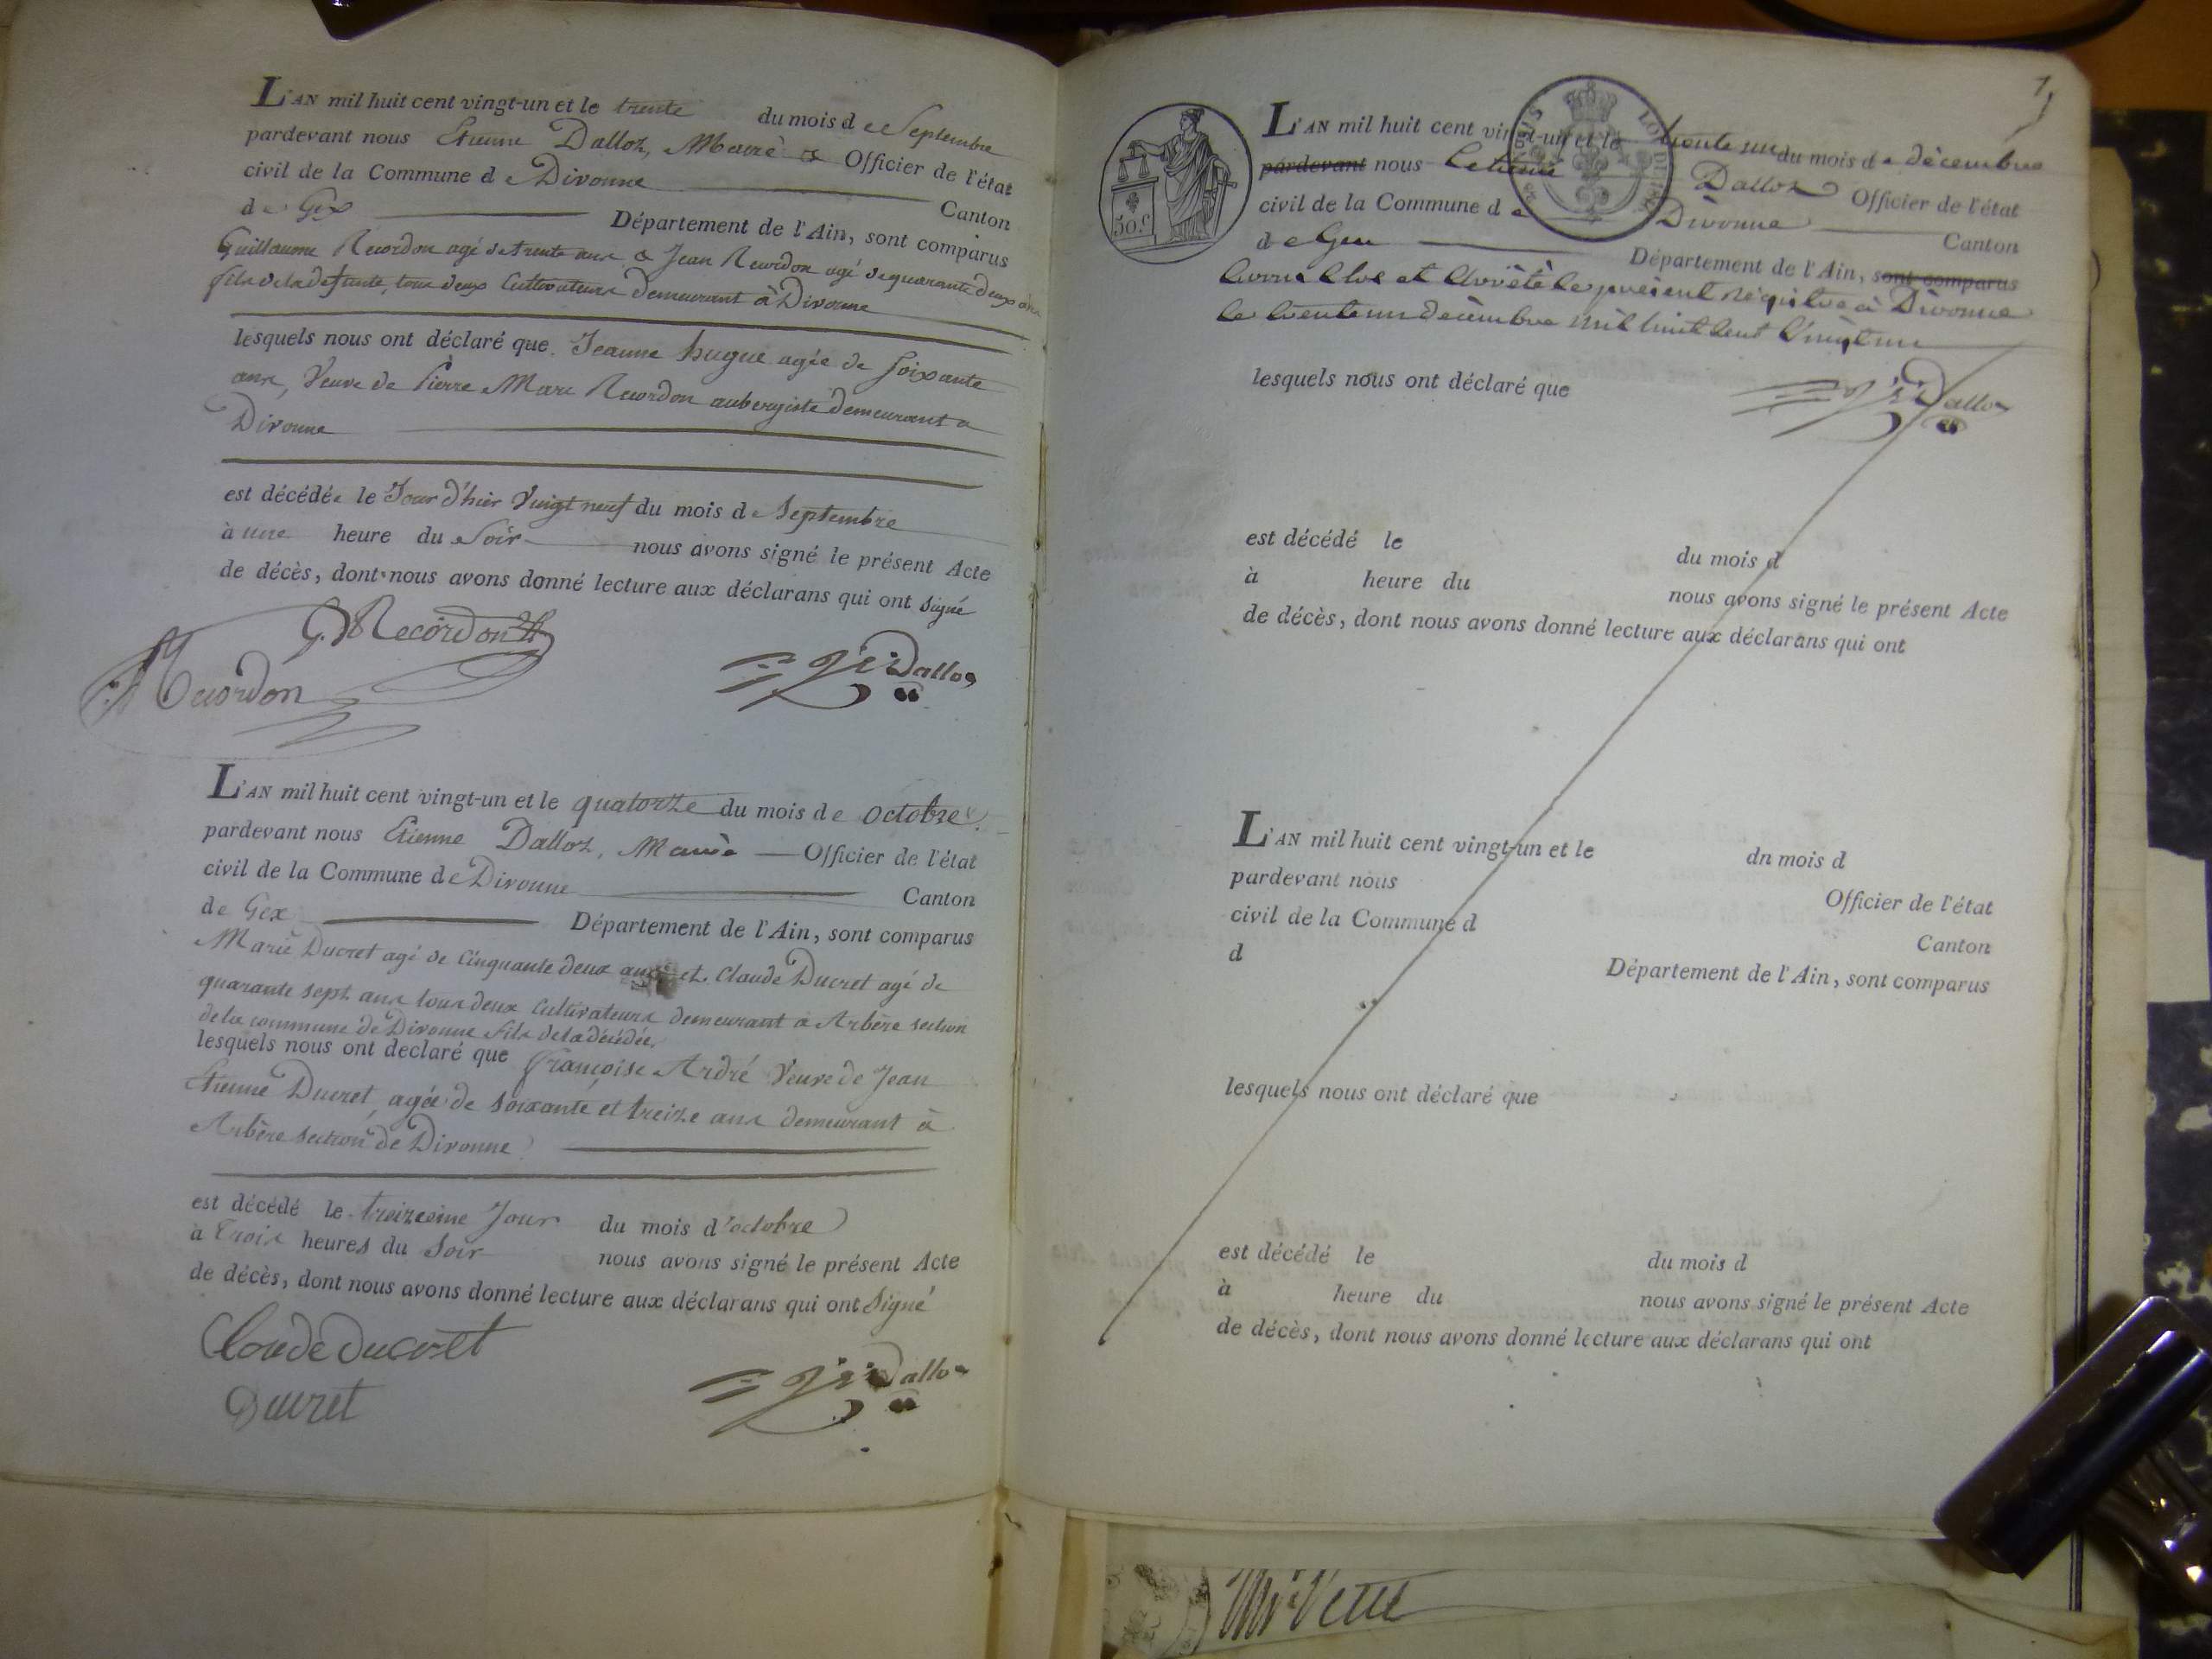 L'AN mil huit cent vingt-un et le trente du mois de Septembre
pardevant nous Etienne Dalloz, Maire & Officier de l'état
civil de la Commune de Divonne Canton
de Gex Département de l'Ain, sont comparus
Guillaume Recordon agé de trente ans & Jean Recordon agé de quarante deux ans
fils de la defunte, tous deux Cultivateurs demeurant à Divonne
lesquels nous ont déclaré que Jeanne hugue agée de soixante
ans, Veuve de Pierre Marc Recordon aubergiste demeurant a
Divonne
est décédée le Jour d'hier Vingt neuf du mois de Septembre
à une heure du Soir nous avons signé le présent Acte
de décès, dont nous avons donné lecture aux déclarans qui ont signé
G. Recordon
Recordon
Dalloz
L'AN mil huit cent vingt-un et le quatorze du mois de Octobre
pardevant nous Etienne Dalloz, Maire Officier de l'état
civil de la Commune de Divonne Canton
de Gex Département de l'Ain, sont comparus
Marie Ducret agé de Cinquante deux ans et Claude Ducret agé de
quarante sept ans tous deux Cultivateurs demeurant a Arbère section
de la commune de Divonne fils de la décédée,
lesquels nous ont declaré que françoise Ardré Veuve de Jean
Etienne Ducret, agée de soixante et treize ans demeurant à
Arbère section de Divonne
est décédé le treizeime Jour du mois d'octobre
à Trois heures du Soir nous avons signé le présent Acte
de décès, dont nous avons donné lecture aux déclarans qui ont Signé
Claude ducret
Ducret
Dalloz
50 c
L'AN mil huit cent vingt-un et le trente un du mois de décembre
pardevant nous Etienne Dalloz Officier de l'état
civil de la Commune de Divonne Canton
de Gex Département de l'Ain, sont comparus
avons Clos et Arrêtè le présent régistre à Divonne
le trente un décembre mil huit Cent Vingt un
Dalloz
lesquels nous ont déclaré que
est décédé le du mois d
à heure du nous avons signé le présent Acte
de décès, dont nous avons donné lecture aux déclarans qui ont
L'AN mil huit cent vingt-un et le dn mois d
pardevant nous Officier de l'état
civil de la Commune d Canton
d Département de l'Ain, sont comparus
lesquels nous ont déclaré que
est décédé le du mois d
à heure du nous avons signé le présent Acte
de décès, dont nous avons donné lecture aux déclarans qui ont